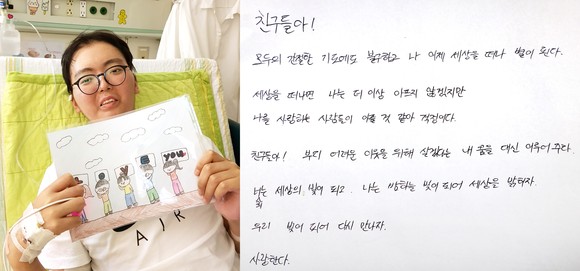 you
AIR
친구들아!
모두의 간절한 기도에도 불구하고 나 이제 세상을 떠나 별이 된다.
세상을 떠나면 나는 더 이상 아프지 않겠지만
나를 사랑하는 사람들이 아플 것 같아 걱정이다.
친구들아! 부디 어려운 이웃을 위해 살겠다는 내 꿈을 대신 이루어주라.
너희는 세상의 빛이 되고, 나는 밤하늘 빛이 되어 세상을 밝히자.
우리 빛이 되어 다시 만나자.
사랑한다.